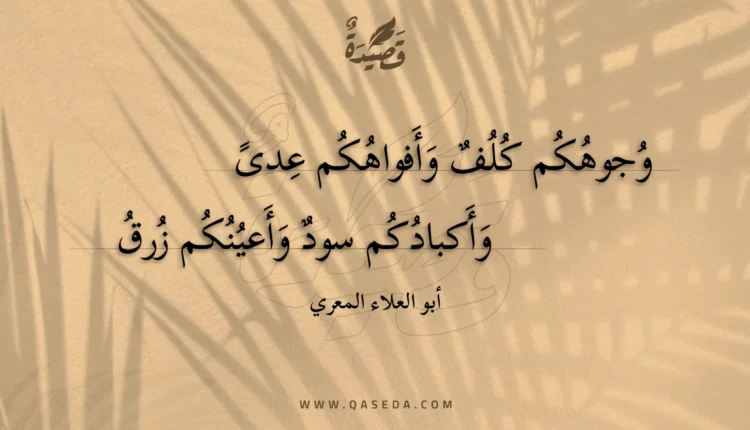 قَصِيدَةٌ
وُجوهُكُم كُلُفٌ وَأَفواهُكُم عِدىً
وَأَكبادُكُم سودٌ وَأَعيُنُكُم زُرقُ
أبو العلاء المعري
WWW.QASEDA.COM